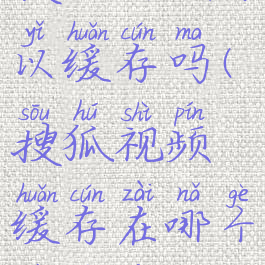 yǐ huǎn cún ma
以缓存吗(
sōu hú shì pín
搜狐视频
huǎn cún zài nǎ gè
缓存在哪个